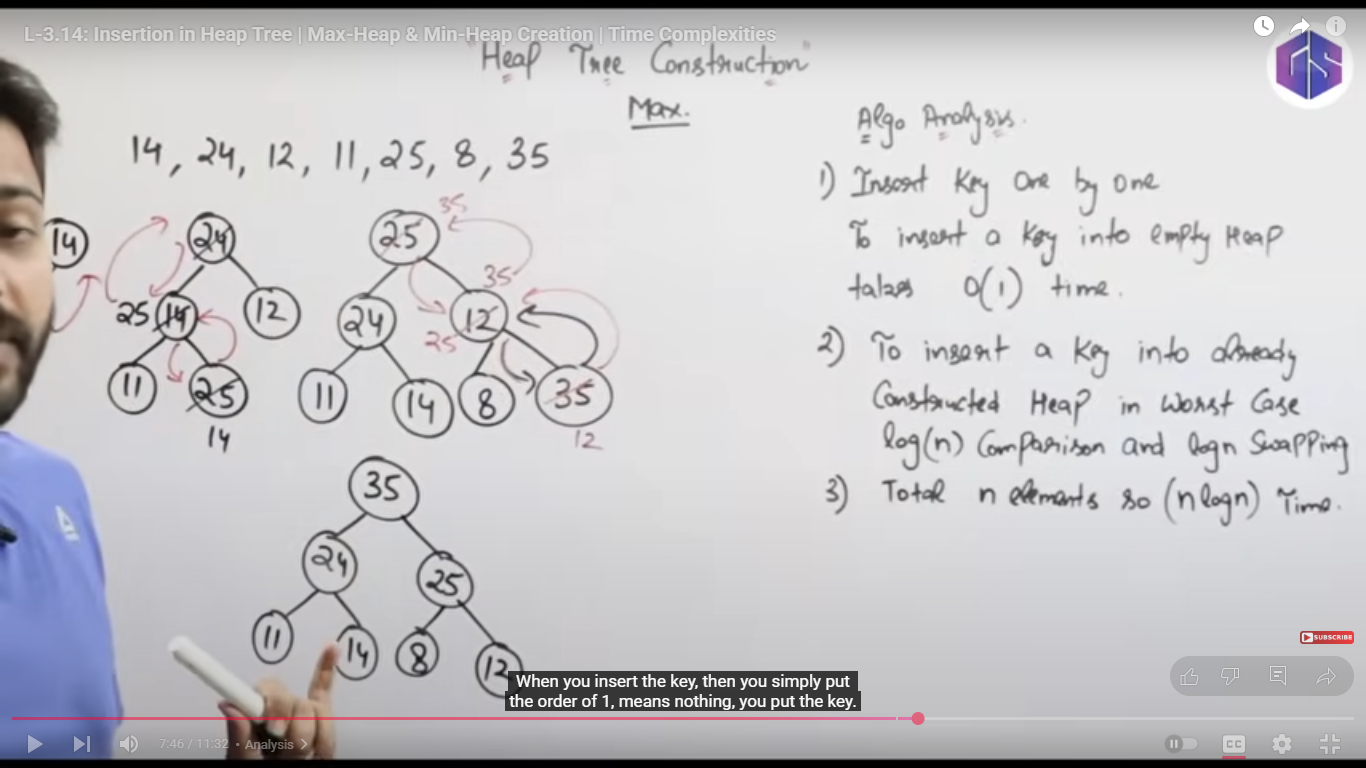 L-3.14: Insertion in Heap Tree | Max-Heap & Min-Heap Creation | Time Complexities
"Heap Tree Construction"
Max.
14, 24, 12, 11, 25, 8, 35
14
24
25 14 12
11 25
14
35
25
35
24 12
25
11 14 8 35
12
35
24 25
11 14 8 12
Algo Analysis.
1) Insert Key One by One
To insert a Key into empty Heap
takes O(1) time.
2) To insert a Key into already
Constructed Heap in Worst Case
log(n) Comparison and logn Swapping
3) Total n elements so (nlogn) Time.
GS
SUBSCRIBE
When you insert the key, then you simply put
the order of 1, means nothing, you put the key.
7:46 / 11:32 • Analysis >
CC